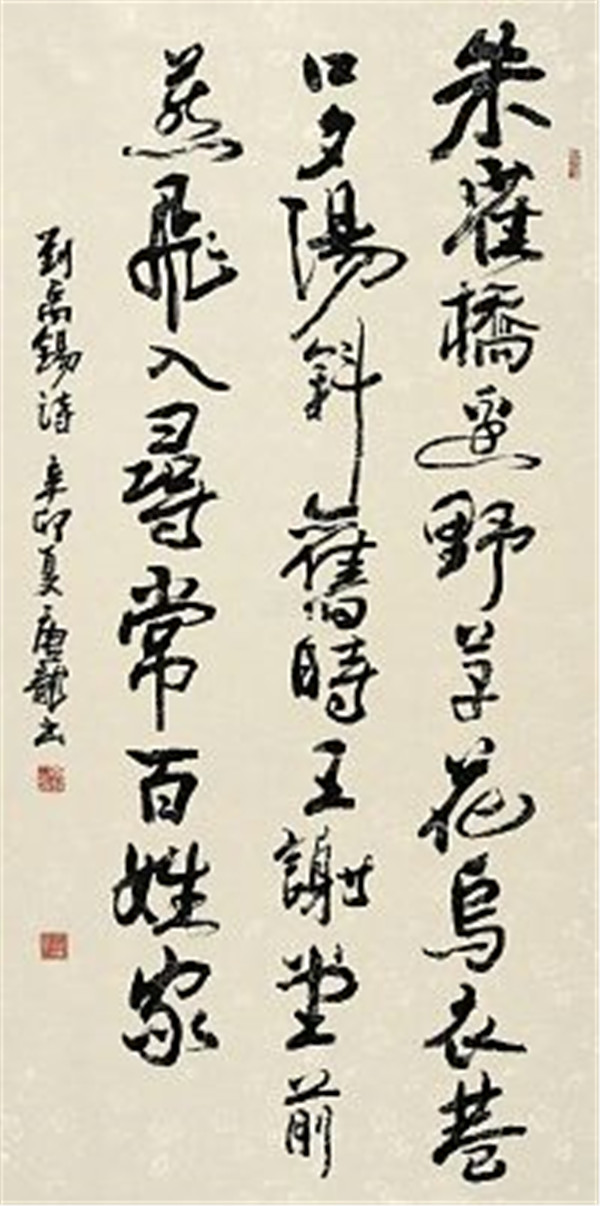 朱雀橋邊野草花烏衣巷
口夕陽斜舊時王謝堂前
燕飛入尋常百姓家
劉禹錫詩 辛卯夏 唐龍書